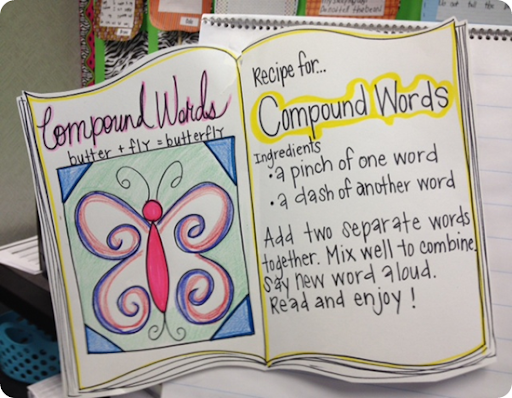 Compound Words
butter + fly = butterfly
Recipe for...
Compound Words
Ingredients
• a pinch of one word
• a dash of another word
Add two separate words
together. Mix well to combine.
Say new word aloud.
Read and enjoy!